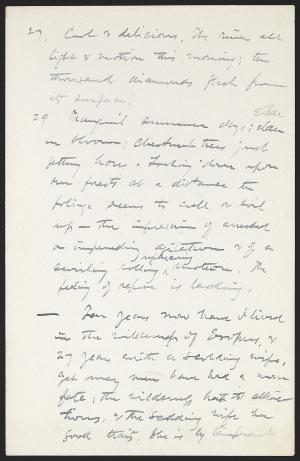 27, Cool & delicious. The river all
light & motion this morning; ten
thousand diamonds flash from
its surface;
29 Tranquil summer days; elder
in bloom; chestnut trees just
getting hoary. Looking down upon
our forests at a distance the
foliage seems to swell or boil
up — the impression of arrested
or impending agitation & of a
swirling rolling, upheaving motion. The
feeling of repose is lacking.
— Ten years now have I lived
in the wilderness of Esopus, &
29 years with a scolding wife,
yet many men have had a worse
fate; the wilderness has its attrac
tions, & the scolding wife her
good traits. She is